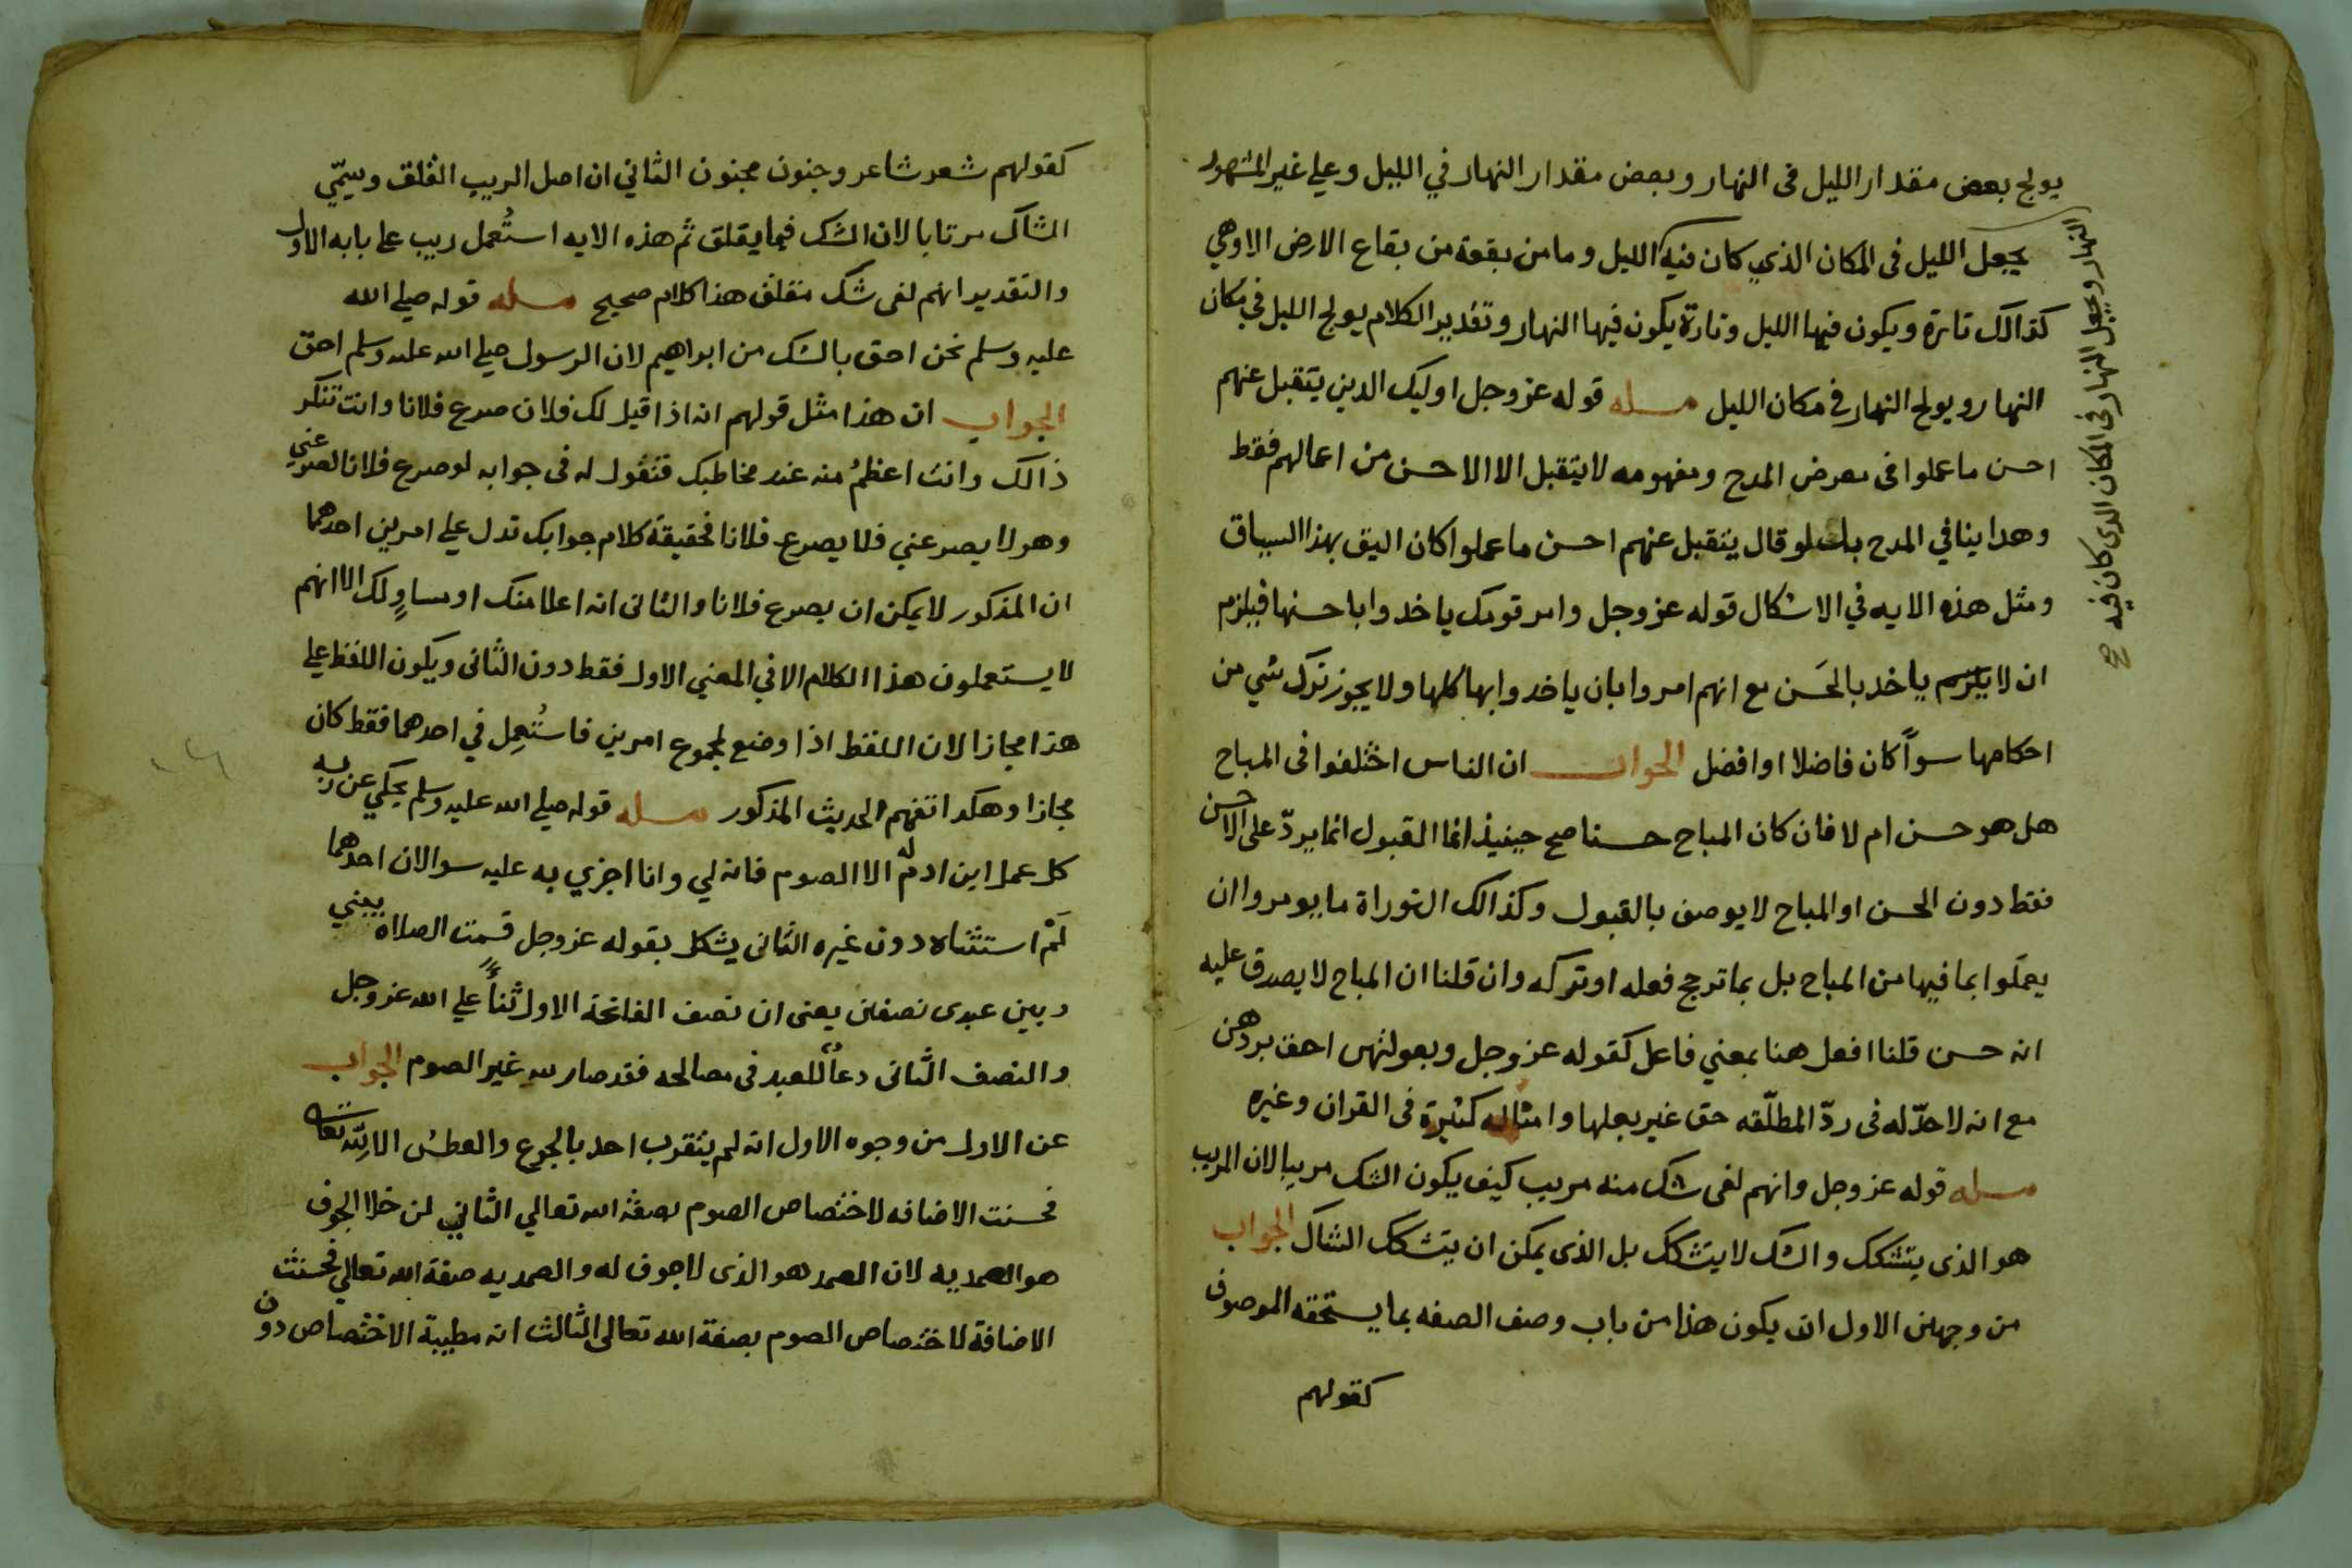 يولج بعض مقدار الليل فى النهار وبعض مقدار النهار في الليل وعلي غير المشهور
يجعل الليل فى المكان الذي كان فيه الليل وما من بقعة من بقاع الارض الا وهي
كذالك تارة ويكون فيها الليل وتارة يكون فيها النهار وتقدير الكلام يولج الليل في مكان
النهار ويولج النهار في مكان الليل مسله قوله عز وجل اوليك الدين يتقبل عنهم
احسن ما عملوا فى معرض المدح ومفهومه لا يتقبل الا الاحسن من اعمالهم فقط
وهدا ينافي المدح بل لو قال يتقبل عنهم احسن ما عملوا كان اليق بهذا السياق
ومثل هذه الايه في الاشكال قوله عز وجل وامر قومك ياخدوا باحسنها فيلزم
ان لا يلزم ياخد بالحَسن مع انهم امروا بان ياخدوا بها كلها ولا يجوز ترك شي من
احكامها سوآً كان فاضلا او افضل الجواب ان الناس اختلفوا فى المباح
هل هو حسن ام لا فان كان المباح حسنا صح حينيذ انما القبول انما يردّ على الاحسن
فقط دون الحسن او المباح لا يوصف بالقبول وكذالك التوراة ما يومروا ان
يعملوا بما فيها من المباح بل بما ترجح فعله او تركه وان قلنا ان المباح لا يصدق عليه
انه حسن قلنا افعل هنا بمعني فاعل كقوله عز وجل وبعولتهن احق بردهن
مع انه لا حدّ له فى ردّ المطلّقه حق غير بعلها وامثاله كثيرة فى القران وغيره
مسله قوله عز وجل وانهم لفى شك منه مريب كيف يكون الشك مريبا لان المريب
هو الذى يتشكك والشك لا يتشكك بل الذى يمكن ان يتشكك الشاك الجواب
من وجهين الاول ان يكون هذا من باب وصف الصفه بما يستحقه الموصوف
كقولهم
النهار ويجعل النهار فى المكان الدى كان فيه صح
كقولهم شعر شاعر وجنون مجنون الثاني ان اصل الريب القلق وسمّي
الشاك مرتابا لان الشك فيما يقلق ثم هذه الايه استُعمل ريب على بابه الاول
والتقدير انهم لفى شك مقلق هذا كلام صحيح مسله قوله صلي الله
عليه وسلم نحن احق بالشك من ابراهيم لان الرسول صلي الله عليه وسلم احق
الجواب ان هذا مثل قولهم انه اذا قيل لك فلان صرع فلانا وانت تنكر
ذالك وانت اعظمُ منه عند مخاطبك فتقول له فى جوابه لو صرع فلانا لصرعني
وهو لا يصرعني فلا يصرع فلانا فحقيقة كلام جوابك تدل علي امرين احدهما
ان المذكور لا يمكن ان يصرع فلانا والثانى انه اعلا منك او مساوٍ لك الا انهم
لا يستعملون هذا الكلام الا في المعني الاول فقط دون الثانى ويكون اللفظ علي
هذا مجازا لان اللفظ اذا وضع لمجموع امرين فاستُعمِل في احدهما فقط كان
مجازا وهكدا تفهم الحديث المذكور مسله قوله صلي الله عليه وسلم يحكي عن ربه
كل عمل ابن ادم له الا الصوم فانه لي وانا اجزي به عليه سوالان احدهما
لَمْ استثناه دون غيره الثانى يشكل بقوله عز وجل قسمت الصلاه بيني
وبين عبدى نصفين يعنى ان نصف الفاتحة الاول ثنآً علي الله عز وجل
والنصف الثانى دعآ للعبد فى مصالحه فقد صار لله غير الصوم الجواب
عن الاول من وجوه الاول انه لم يتقرب احد بالجوع والعطش الا لله تعالى
فحسنت الاضافه لاختصاص الصوم بصفة الله تعالي الثاني لن خلا الجوف
هو الصمديه لان الصمد هو الذى لا جوف له والصمديه صفة الله تعالي فحسنت
الاضافة لاختصاص الصوم بصفة الله تعالى الثالث انه مطيبة الاختصاص دون